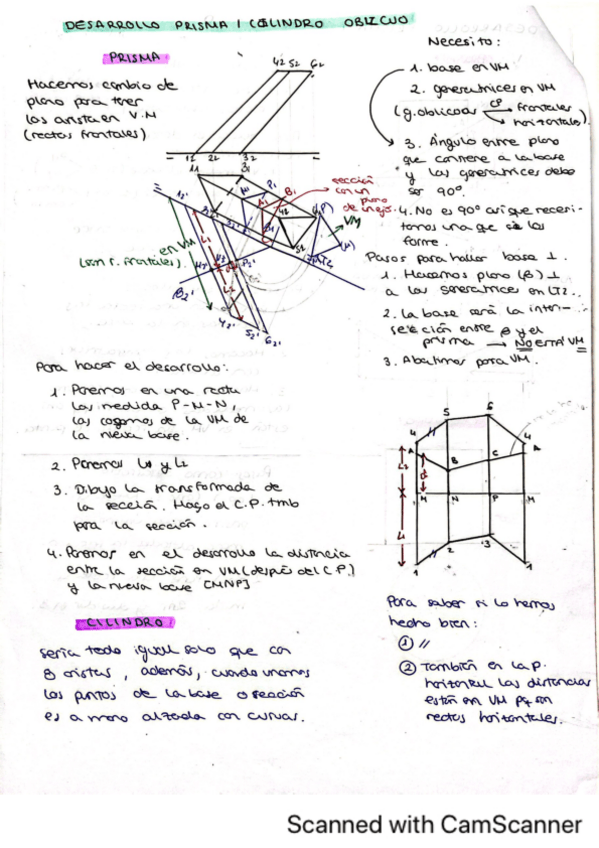 DESARROLLO PRISMA / CILINDRO OBLICUO
PRISMA
Hacemos cambio de
plano para tener
las arista en V.M
(rectas frontales)
Necesito:
1. base en VM
2. generatrices en VM
(g. oblicuas CP frontales
horizontales)
3. Ángulo entre plano
que contiene a la base
y las generatrices debe
ser 90º.
4. No es 90º así que necesi-
tamos una que si lo
forme.
Pasos para hallar base ⊥.
1. Hacemos plano (β) ⊥
a las generatrices en LT2.
2. La base será la inter-
sección entre β y el
prisma → No en VM
3. Abatimos para VM.
42 52 62
12 22 32
sección
con un
plano
de canto
VM
en VM
(son r. frontales).
Para hacer el desarrollo:
1. Ponemos en una recta
las medida P-M-N,
las cogemos de la VM de
la nueva base.
2. Ponemos L1 y L2
3. Dibujo la transformada de
la sección. Hago el C.P. tmb
para la sección.
4. Ponemos en el desarrollo la distancia
entre la sección en VM (despés del C.P.)
y la nueva base [MNP]
5 6
4 4
A B C A
M N P M
1 2 3 1
L2
L1
CILINDRO:
sería todo igual solo que con
8 aristas, además, cuando unamos
los puntos de la base o sección
es a mano alzada con curvas.
Para saber si lo hemos
hecho bien:
① //
② También en la p.
horizontal las distancias
están en VM pq son
rectas horizontales.
Scanned with CamScanner